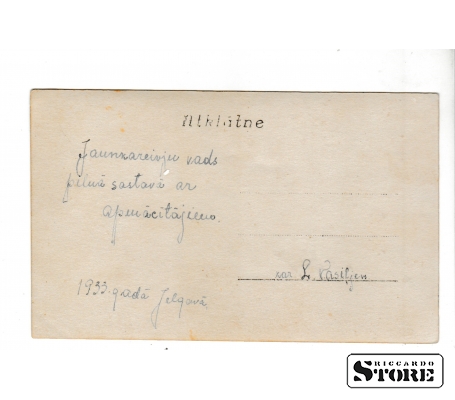 Atklātne
Jaunkareivju vads
pilnā sastavā ar
apmācītājiem.
1933. gadā Jelgavā.
kar L.
RICCARDO
STORE